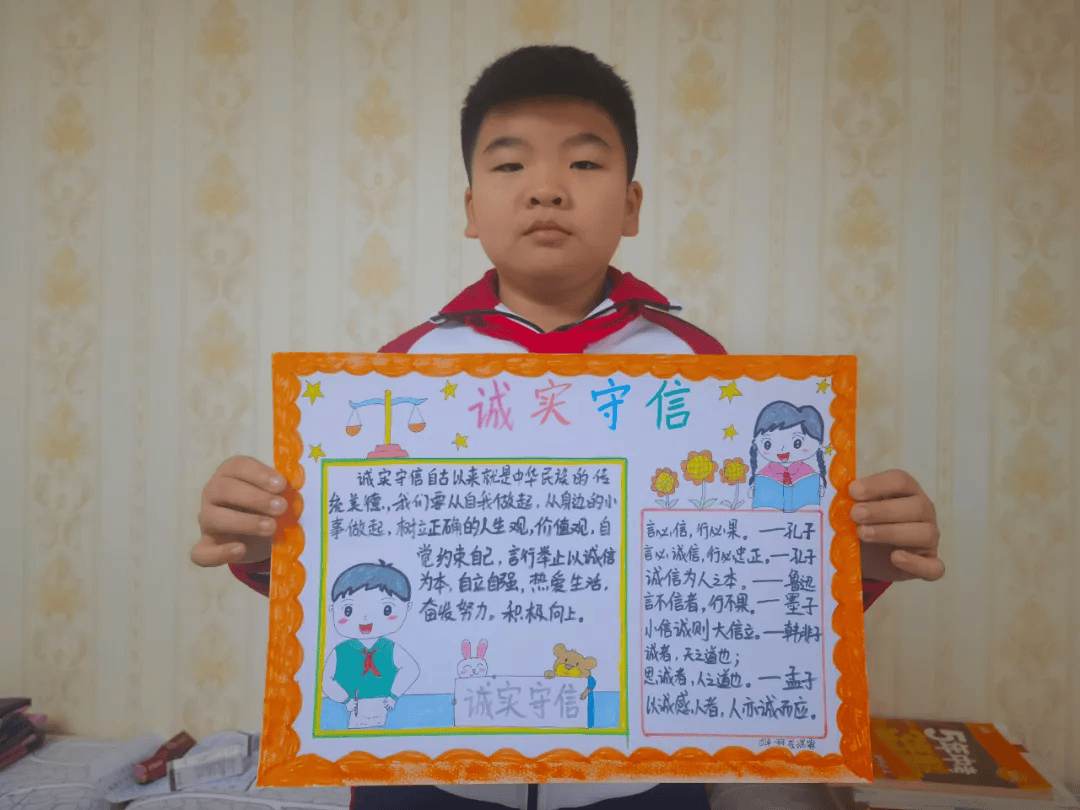 诚实守信
诚实守信自古以来就是中华民族的传
统美德,,我们要从自我做起,从身边的小
事做起,树立正确的人生观,价值观,自
觉约束自己,言行举止以诚信
为本,自立自强,热爱生活,
奋发努力。积极向上。
诚实守信
言必信,行必果。——孔子
言必诚信,行必忠正。—孔子
诚信为人之本。——鲁迅
言不信者,行不果。—墨子
小信诚则大信立。—韩非子
诚者,天之道也;
思诚者,人之道也。——孟子
以诚感人者,人亦诚而应。
5年中考